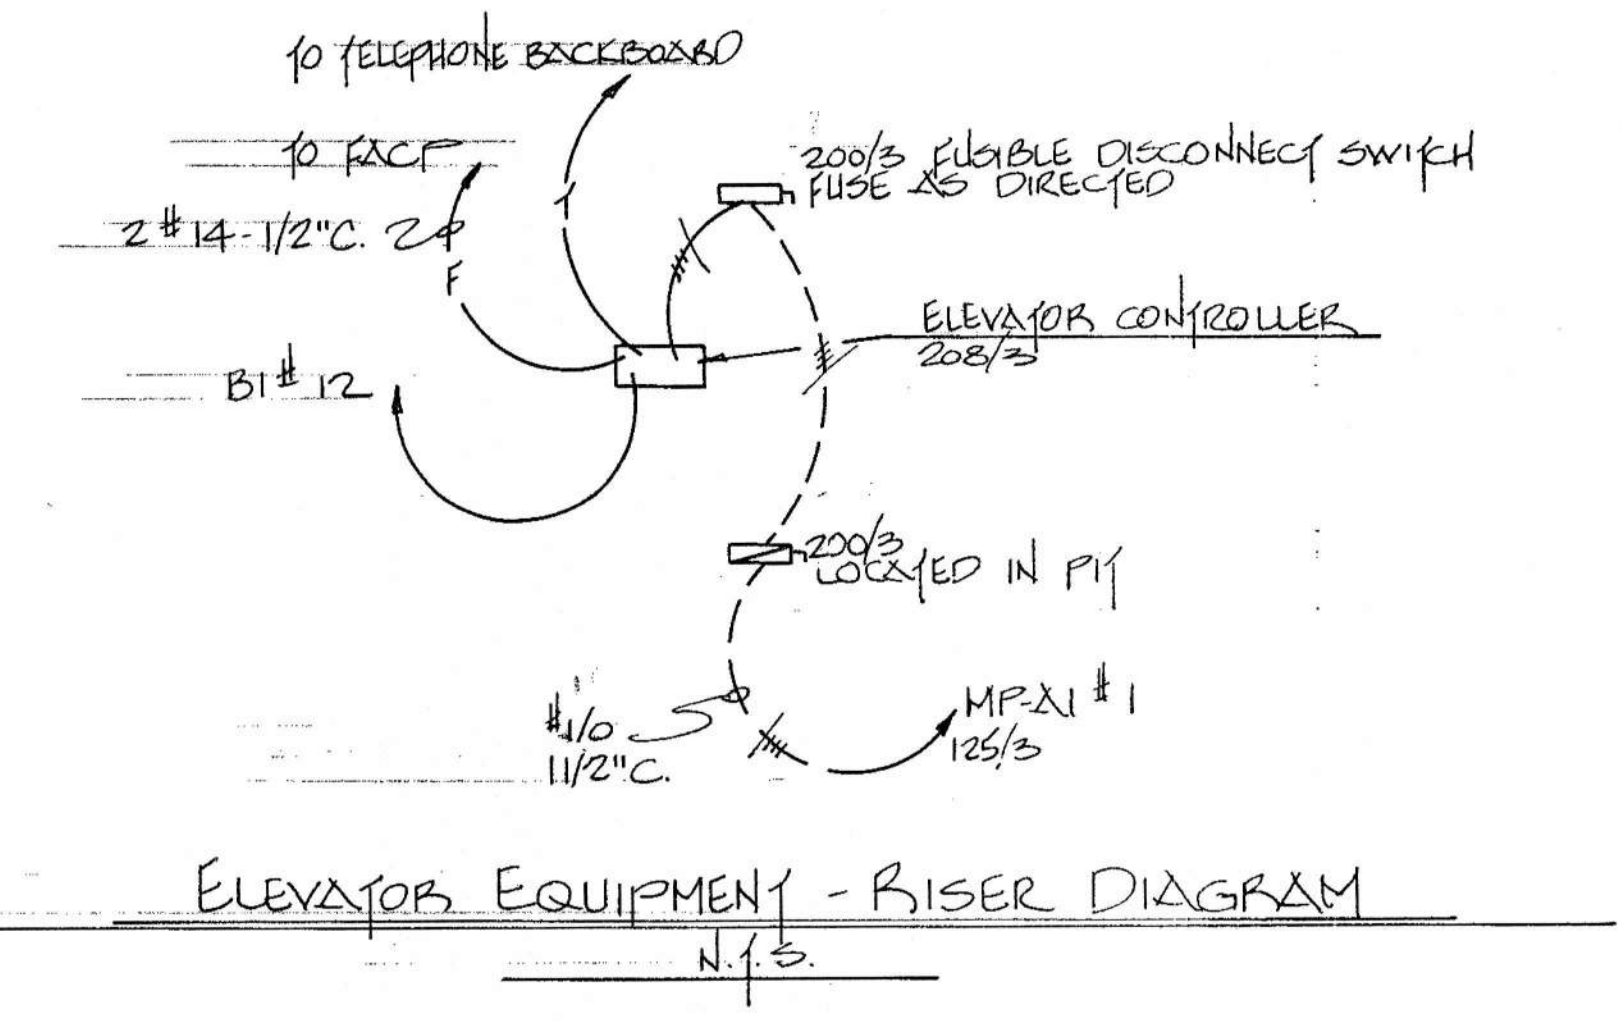 TO TELEPHONE BACKBOARD
TO FACP
200/3 FUSIBLE DISCONNECT SWITCH
FUSE AS DIRECTED
T
2 #14-1/2"C.
F
ELEVATOR CONTROLLER
208/3
B1 # 12
200/3
LOCATED IN PIT
MP-A1 # 1
125/3
#1/0
1 1/2"C.
ELEVATOR EQUIPMENT - RISER DIAGRAM
N.T.S.